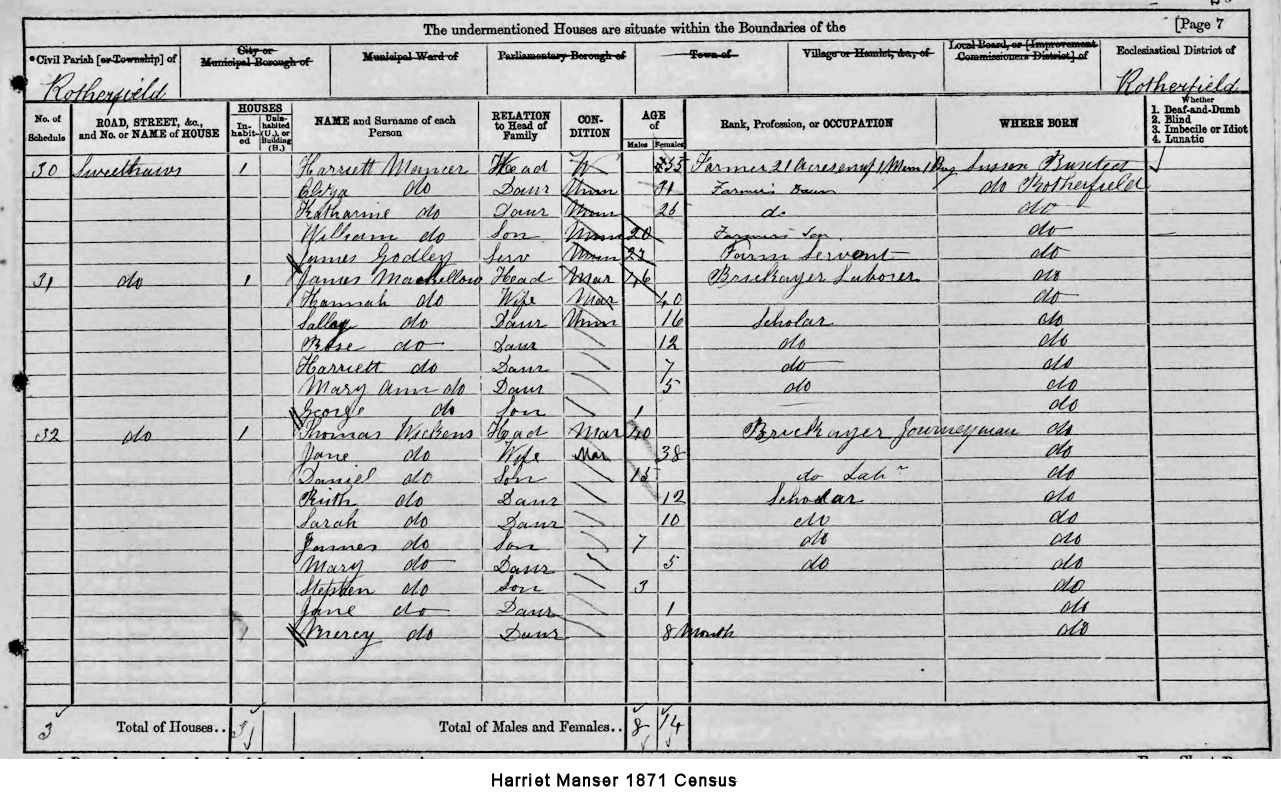 The undermentioned Houses are situate within the Boundaries of the [Page 7
Civil Parish [or Township] of City or Municipal Borough of Municipal Ward of Parliamentary Borough of Town of Village or Hamlet, &c., of Local Board, or [Improvement Commissioners District] of Ecclesiastical District of
Rotherfield Rotherfield
No. of Schedule ROAD, STREET, &c., and No. or NAME of HOUSE HOUSES Inhabited Uninhabited (U.), or Building (B.) NAME and Surname of each Person RELATION to Head of Family CONDITION AGE of Males Females Rank, Profession, or OCCUPATION WHERE BORN Whether 1. Deaf-and-Dumb 2. Blind 3. Imbecile or Idiot 4. Lunatic
30 Sweethaws 1 Harriett Manser Head W Farmer 21 Acres 1 Man 1 Boy Sussex Buxted
Eliza do Daur Unm 31 Farmer's Daur do Rotherfield
Katharine do Daur Unm 25 do do
William do Son Unm 20 Farmer's Son do
James Godley Serv Unm Farm Servant do
31 do 1 James Head Mar 46 Brickayer Laborer do
Hannah do Wife Mar 40 do
Sally do Daur Unm 16 Scholar do
Rose do Daur 12 do do
Harriett do Daur 7 do do
Mary Ann do Daur 5 do do
George do Son 1 do
32 do 1 Thomas Wickens Head Mar 40 Brickayer Journeyman do
Jane do Wife Mar 38 do
Daniel do Son 15 do Labr do
Ruth do Daur 12 Scholar do
Sarah do Daur 10 do do
James do Son 7 do do
Mary do Daur 5 do do
Stephen do Son 3 do
Jane do Daur 1 do
Mercy do Daur 8 Month do
3 Total of Houses.. 3 Total of Males and Females.. 8 14
Harriet Manser 1871 Census